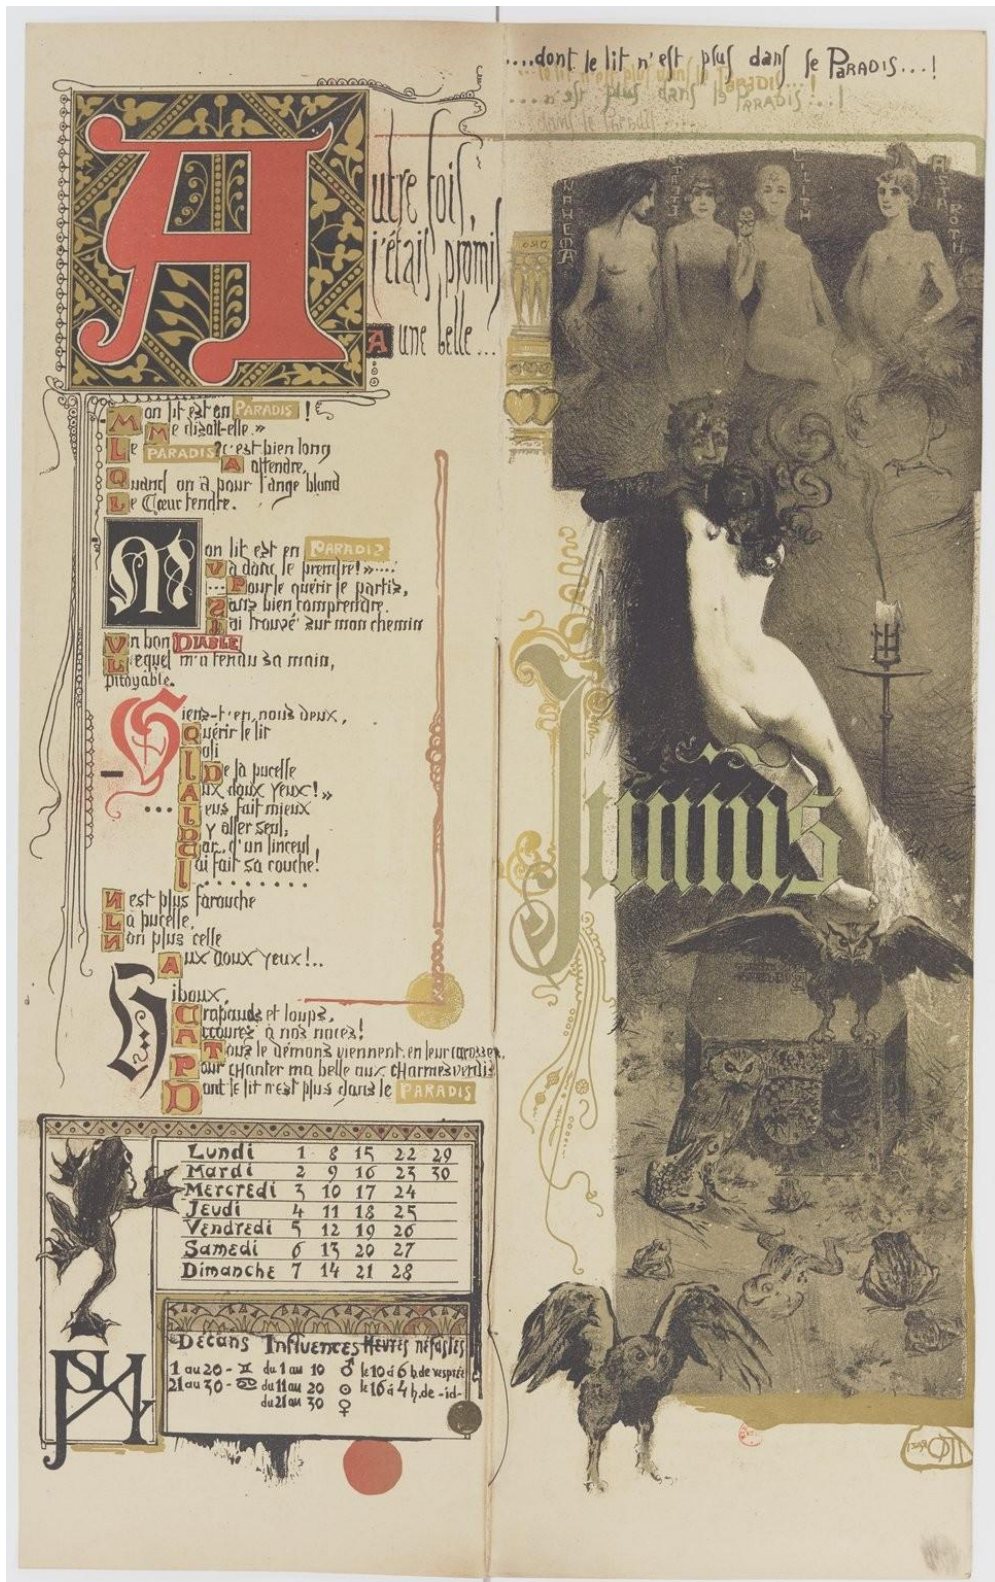 ....dont le lit n'est plus dans le PARADIS...!
le lit n'est plus dans le PARADIS...!
...n'est plus dans le PARADIS...!
dans le Paradis....
Autre fois,
j'étais promis
A une belle...
Mon lit est en PARADIS!
Me disait-elle»
Le PARADIS? c'est bien long
A attendre,
Quand on à pour l'ange blond
Le Cœur tendre.
Mon lit est en PARADIS
Va donc le prendre!»....
...Pour le quérir je partis,
Sans bien comprendre.
J'ai trouvé sur mon chemin
Un bon DIABLE
Lequel m'a tendu sa main,
pitoyable.
Viens-t-en, nous deux,
Quérir le lit
Joli
De la pucelle
Aux doux yeux!»
... J'eus fait mieux
D'y aller seul;
Car, d'un linceul,
J'ai fait sa couche!
........
N'est plus farouche
La pucelle,
Non plus celle
Aux doux yeux!..
Hiboux,
Crapauds et loups,
Accourez à nos noces!
Tous le démons viennent en leur carosses,
Pour cHanter ma belle aux cHarmes verdis
Dont le lit n'est plus dans le PARADIS
NAHEMA
LILITH
ASTAROTH
Junius
Lundi 1 8 15 22 29
Mardi 2 9 16 23 30
Mercredi 3 10 17 24
Jeudi 4 11 18 25
Vendredi 5 12 19 26
Samedi 6 13 20 27
Dimanche 7 14 21 28
Décans Influences Heures néfastes
1 au 20 - ♊ du 1 au 10 ♂ le 10 à 6 h. de vesprée
21 au 30 - ♋ du 11 au 20 ☉ le 16 à 4 h. de -id-
du 21 au 30 ♀